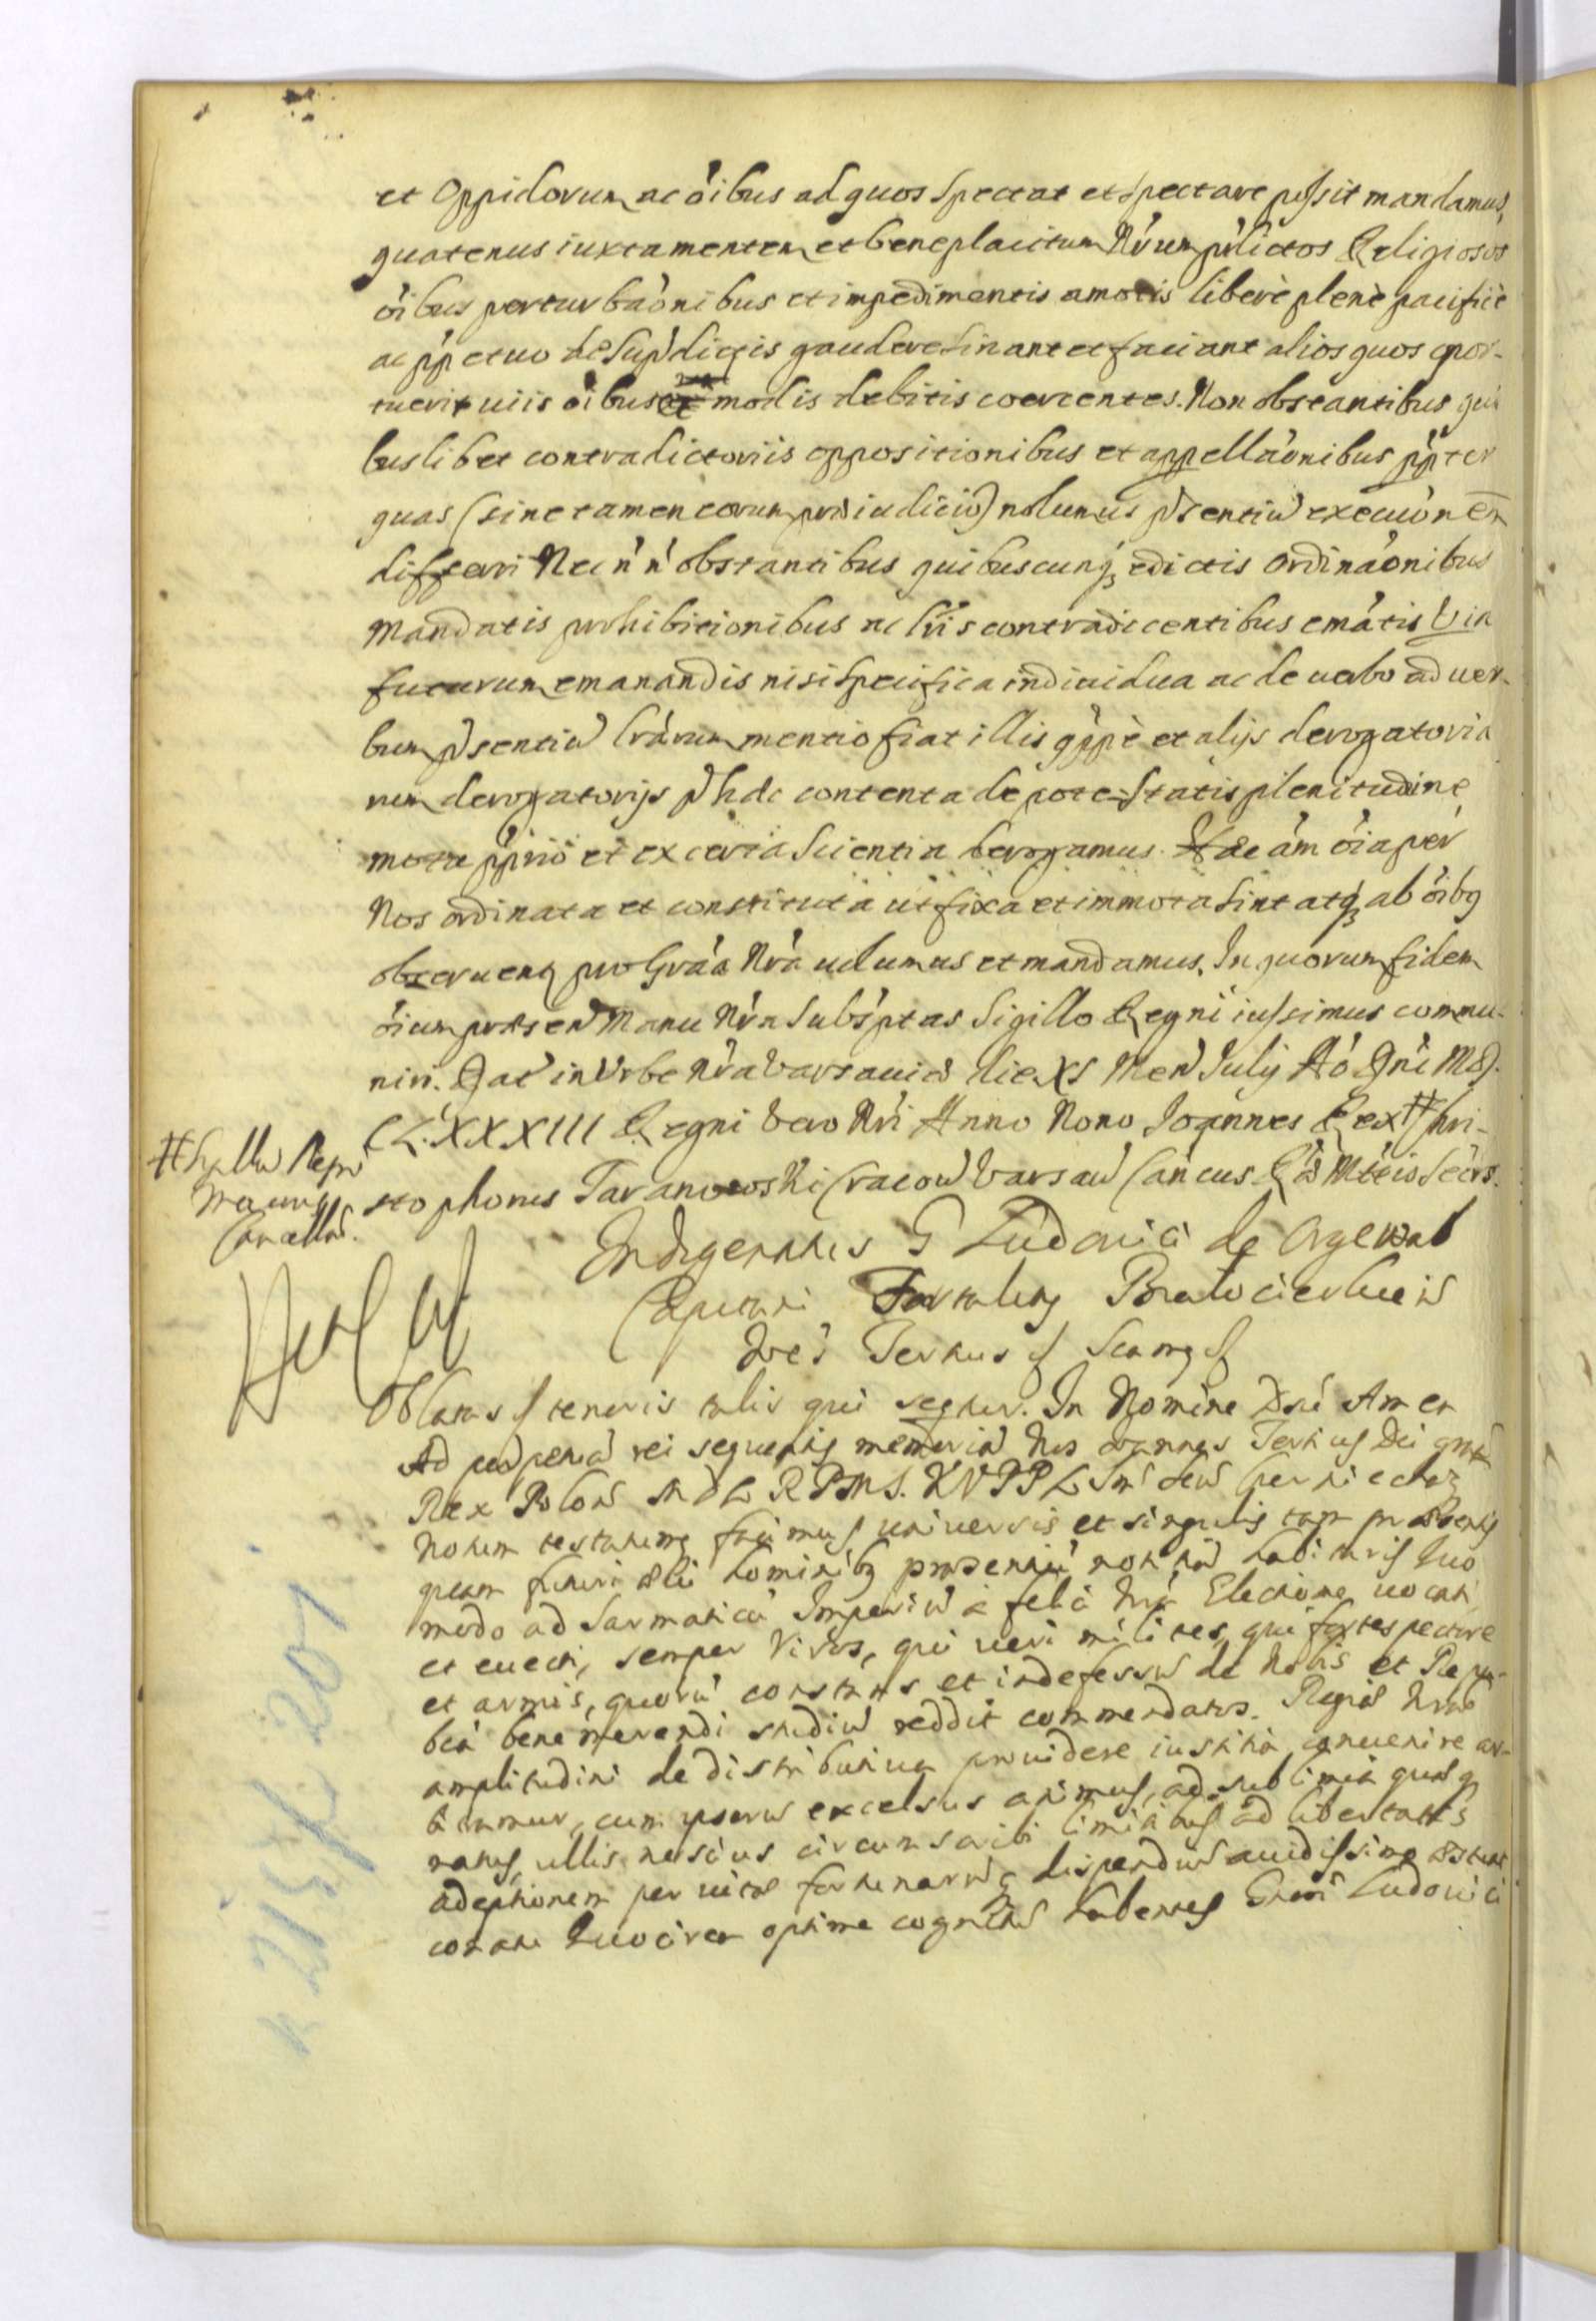 et Oppidorum ac oibus ad quos spectat et spectare possit mandamus,
quatenus iuxta mentem et beneplacitum Nrum pdictos Religiosos
oibus perturbaonibus et impedimentis amotis liberè plenè pacificè
ac ppetuo de supdictis gaudere sinant et faciant alios quos opor-
tuerit uiis oibus et modis debitis coercentes. Non obstantibus qui
buslibet contradictoriis oppositionibus et appellaonibus ppter
quas (sine tamen eorum prdiudicio) nolumus psentiu execuonem
differri Nec nn obstantibus quibuscunq edictis ordinaonibus
mandatis prohibitionibus ac lris contradicentibus emãtis
futurum emanandis nisi specifica indiuidua ac de uerbo ad uer-
bum psentiu lrarum mentio fiat illis et alijs derogatoria
rum derogatorijs contenta de potestatis plenitudine
motu pprio et ex certa scientia derogamus. oia per
Nos ordinata et constituta ut fixa et immota sint atq ab oibq
obseruenq pro Graa Nra uolumus et mandamus. In quorum fidem
oium prdsen Manu Nra subsptas Sigillo Regni iussimus commu-
niri. Dat in Urbe Nra Varsauid die XI Men Julij Ao Dni MD.
CLXXXIII Regni vero Nri Anno Nono Joannes Rex # Chri-
stophorus Taranowski Cracou Varsau Cancus Rd Mttis Secrs.
# Sigillu Regni
maioris
Cancellar.
Indigenatus G Ludouici de
Capitani
Joes Tertius
Oblatus tenoris talis qui seqtur. In Nomine Dni Amen
Ad perpetua rei sequentis memoria Nos Joannes Tertius Dei gratia
Rex Polon M D L R P M S. K V P P L Sm Seu Czerniechoq
Notum testatumq facimus uniuersis et singulis tam prdsentis
quam futuri hominibq prdsentiu notitia habituris Quo
modo ad Sarmaticu Imperiu a felici Nra Electione uocati
et euecti, semper Viros, qui ueri milites, qui fortes pectore
et armis, quoru constans et indefessu de Nobis et Repu-
bca bene merendi studiu reddit commendatos. Regid Nrad
amplitudini de distributiua prouidere iustitia conuenire ar-
bitramur, cum ipsoru excelsus animus, ad sublimia qudq
natus, ullis nescius circumscribi limitibus ad libertatis
adeptionem per uitd fortunaruq dispendiu auidissimo
conatu Quocirca optime cognitu habentes Grosi Ludouici